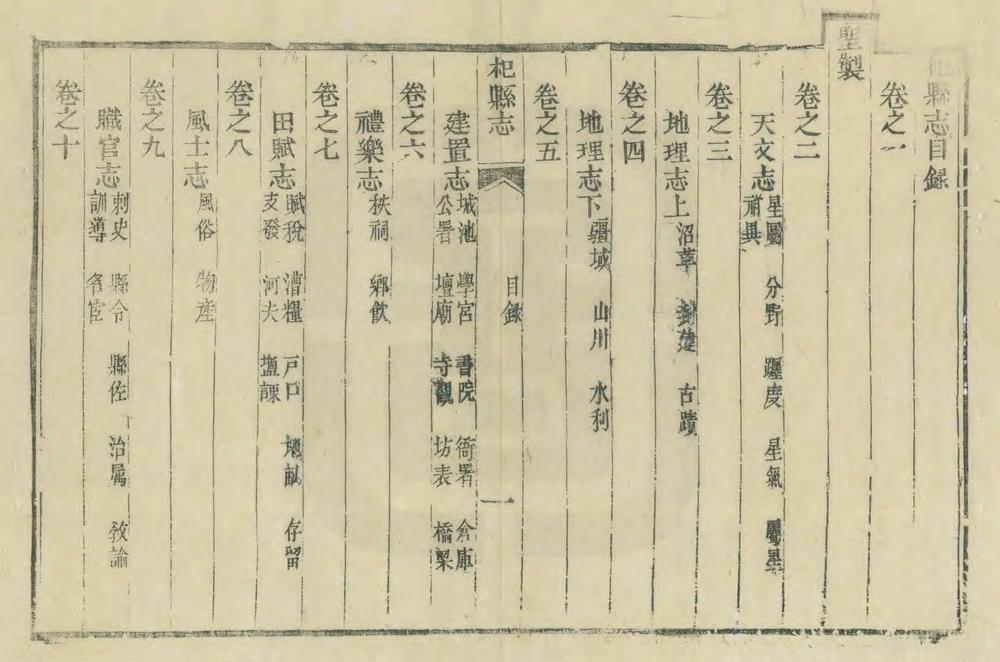 杞縣志目錄
卷之一
聖製
卷之二
天文志 星屬 分野 躔度 星氣 屬星 祥異
卷之三
地理志上 沿革 封建 古蹟
卷之四
地理志下 疆域 山川 水利
卷之五
杞縣志 目錄 一
建置志 城池 學宮 書院 衙署 倉庫 公署 壇廟 寺觀 坊表 橋梁
卷之六
禮樂志 秩祠 鄉飲
卷之七
田賦志 賦稅 漕糧 戸口 地畝 存留 支發 河夫 鹽課
卷之八
風土志 風俗 物產
卷之九
職官志 刺史 縣令 縣佐 治屬 敎諭 訓導 名宦
卷之十